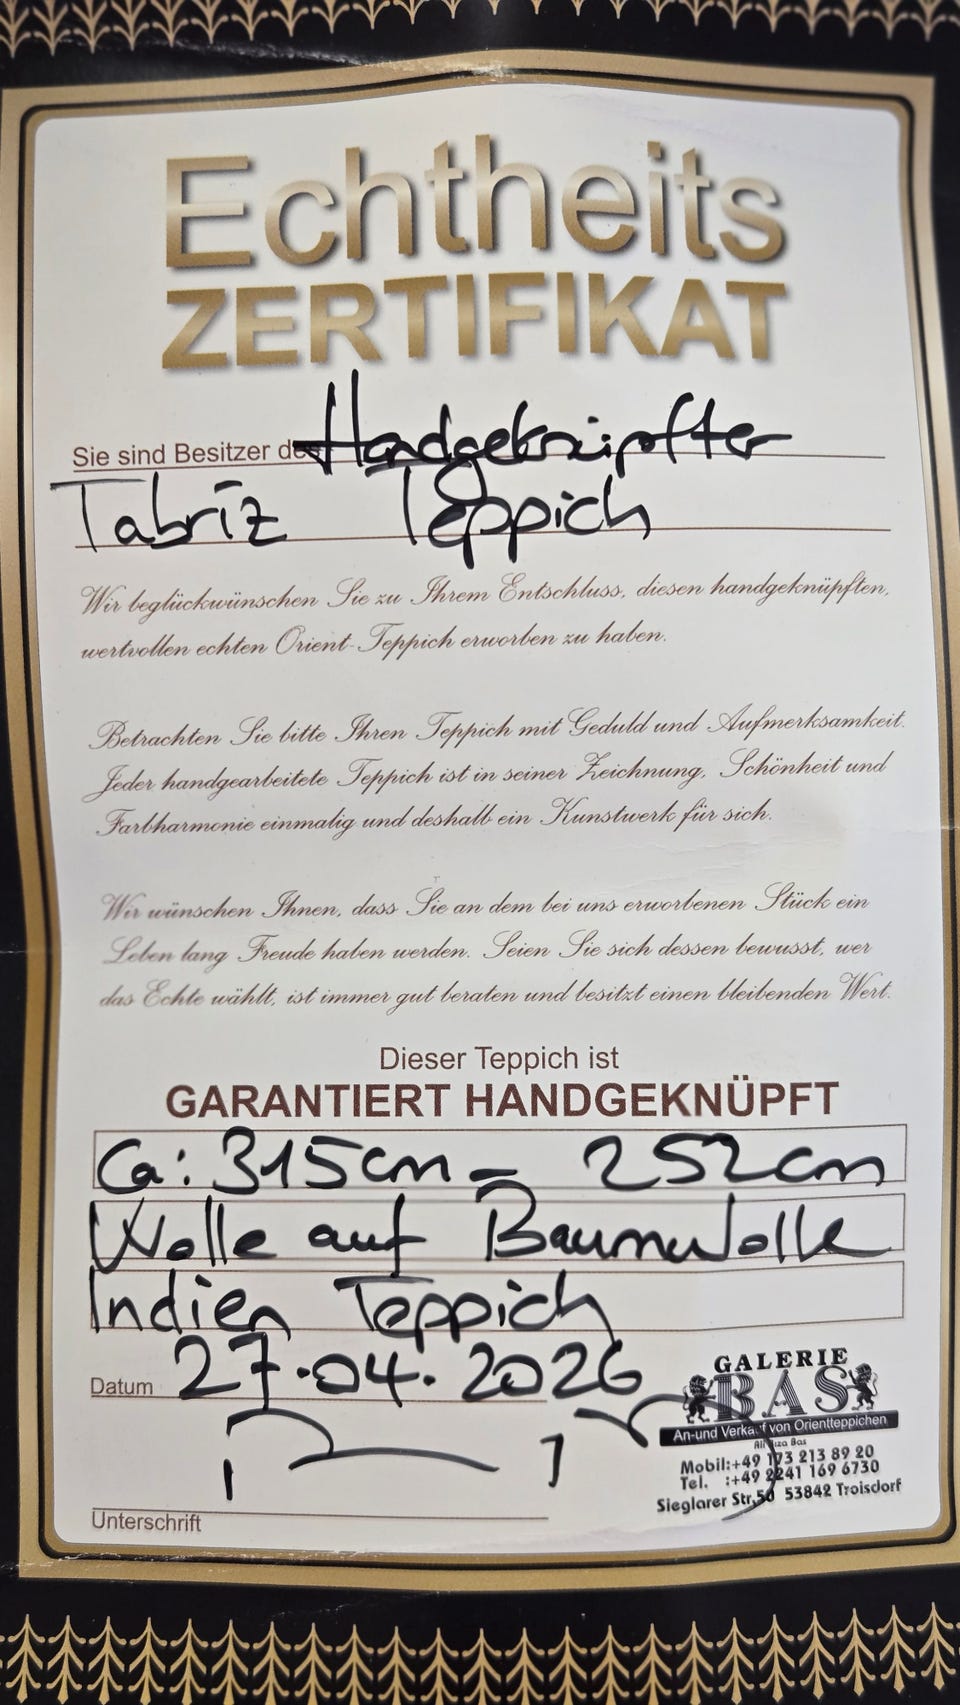 Echtheits
ZERTIFIKAT
Sie sind Besitzer des Handgeknüpfter
Tabriz Teppich
Wir beglückwünschen Sie zu Ihrem Entschluss, diesen handgeknüpften,
wertvollen echten Orient-Teppich erworben zu haben.
Betrachten Sie bitte Ihren Teppich mit Geduld und Aufmerksamkeit.
Jeder handgearbeitete Teppich ist in seiner Zeichnung, Schönheit und
Farbharmonie einmalig und deshalb ein Kunstwerk für sich.
Wir wünschen Ihnen, dass Sie an dem bei uns erworbenen Stück ein
Leben lang Freude haben werden. Seien Sie sich dessen bewusst, wer
das Echte wählt, ist immer gut beraten und besitzt einen bleibenden Wert.
Dieser Teppich ist
GARANTIERT HANDGEKNÜPFT
Ca: 315cm - 252cm
Wolle auf Baumwolle
Indien Teppich
Datum 27.04.2026
GALERIE
BAS
An-und Verkauf von Orientteppichen
Ali Riza Bas
Mobil:+49 173 213 89 20
Tel. :+49 2241 169 6730
Sieglarer Str.50 53842 Troisdorf
Unterschrift